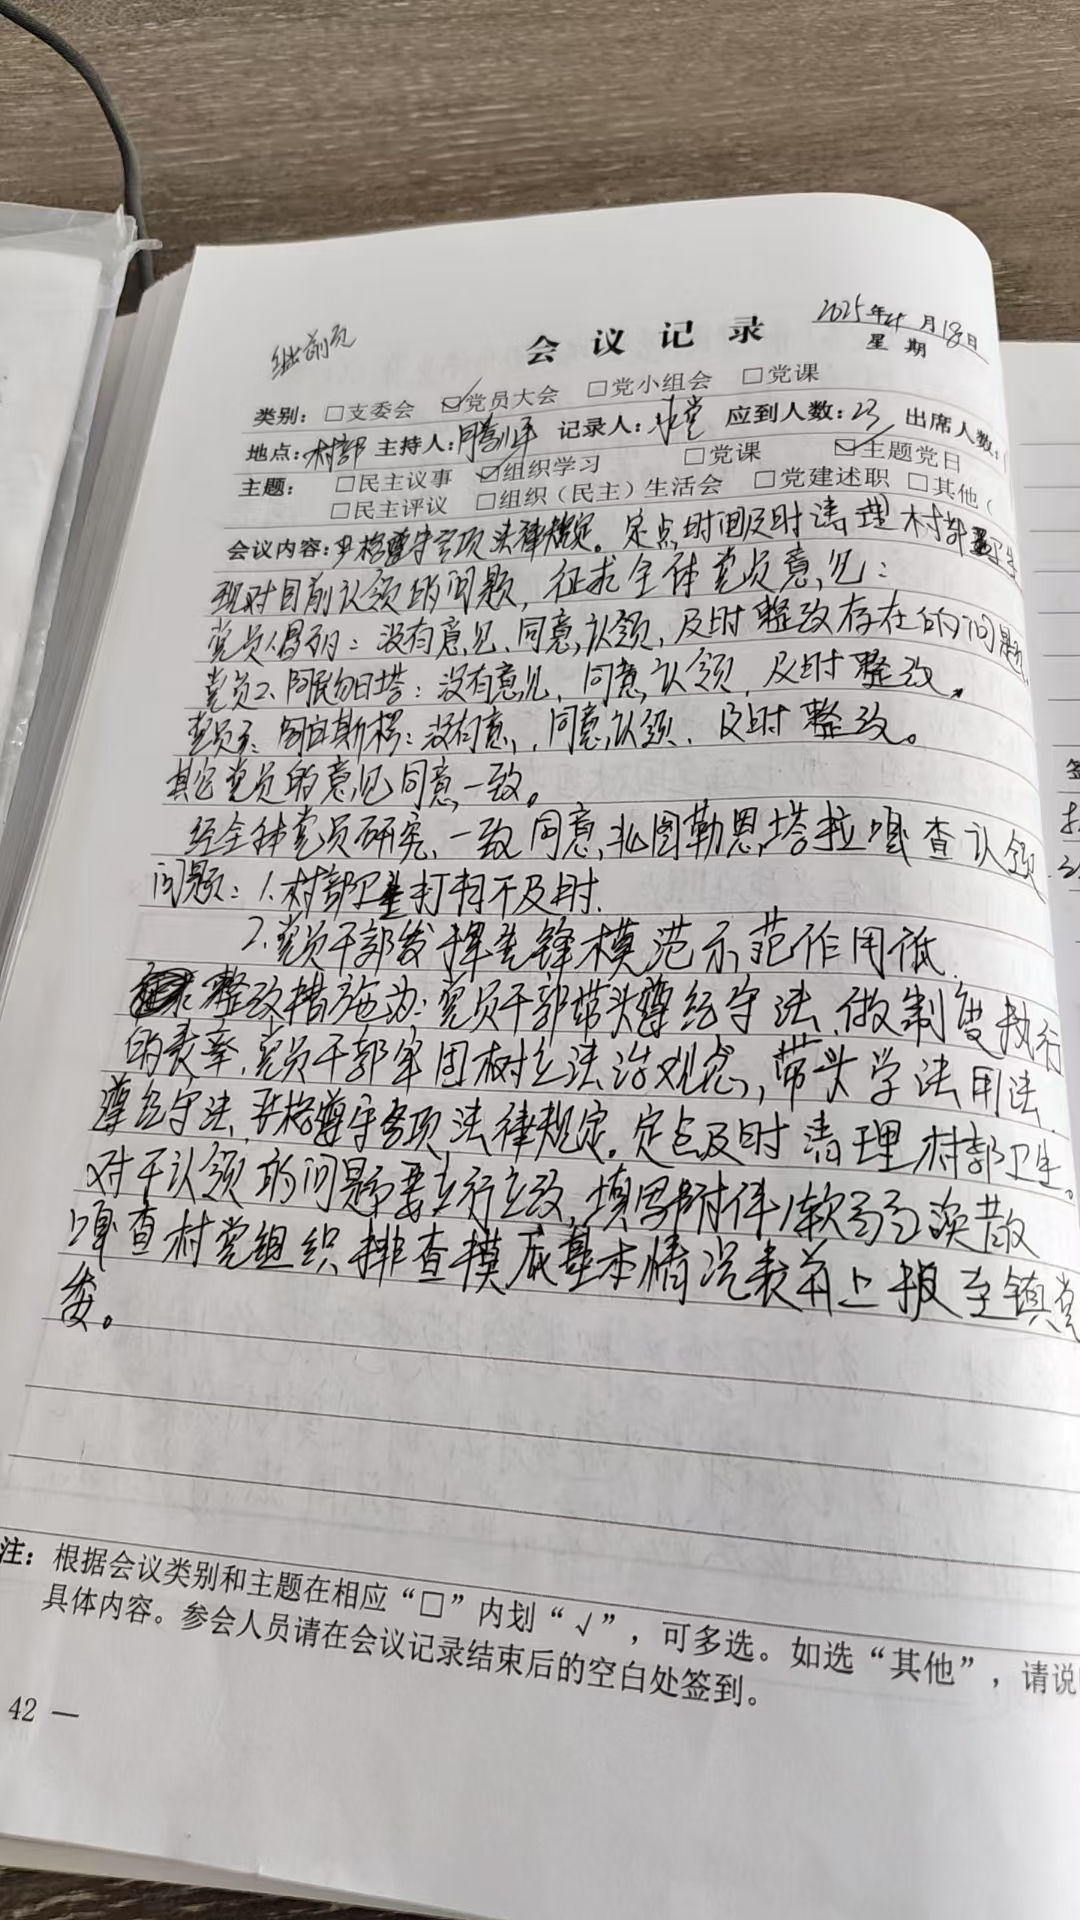 继前页
会议记录
2025年4月18日
星期
类别：□支委会 ☑党员大会 □党小组会 □党课
地点：村部 主持人： 记录人： 应到人数：23 出席人数：
主题：□民主议事 ☑组织学习 □党课 ☑主题党日
□民主评议 □组织（民主）生活会 □党建述职 □其他（
会议内容：严格遵守各项法律规定。定点时间及时清理村部卫生
现对目前认领的问题，征求全体党员意见：
党员1、：没有意见、同意认领，及时整改存在的问题。
党员2、阿民勿日塔：没有意见，同意认领，及时整改。
党员3、：没有意，，同意认领，及时整改。
其它党员的意见同意一致。
经全体党员研究，一致同意，北图勒恩塔拉嘎查认领
问题：1.村部卫生打扫不及时.
2.党员干部发挥先锋模范示范作用低.
整改措施为：党员干部带头遵纪守法，做制度执行
的表率，党员干部牢固树立法治观念，带头学法用法，
遵纪守法，严格遵守各项法律规定。定点及时清理村部卫生。
对于认领的问题需要立行立改，填写附件1软弱涣散
嘎查村党组织排查摸底基本情况表并上报至镇党
委。
注：根据会议类别和主题在相应“□”内划“√”，可多选。如选“其他”，请说
具体内容。参会人员请在会议记录结束后的空白处签到。
42 —